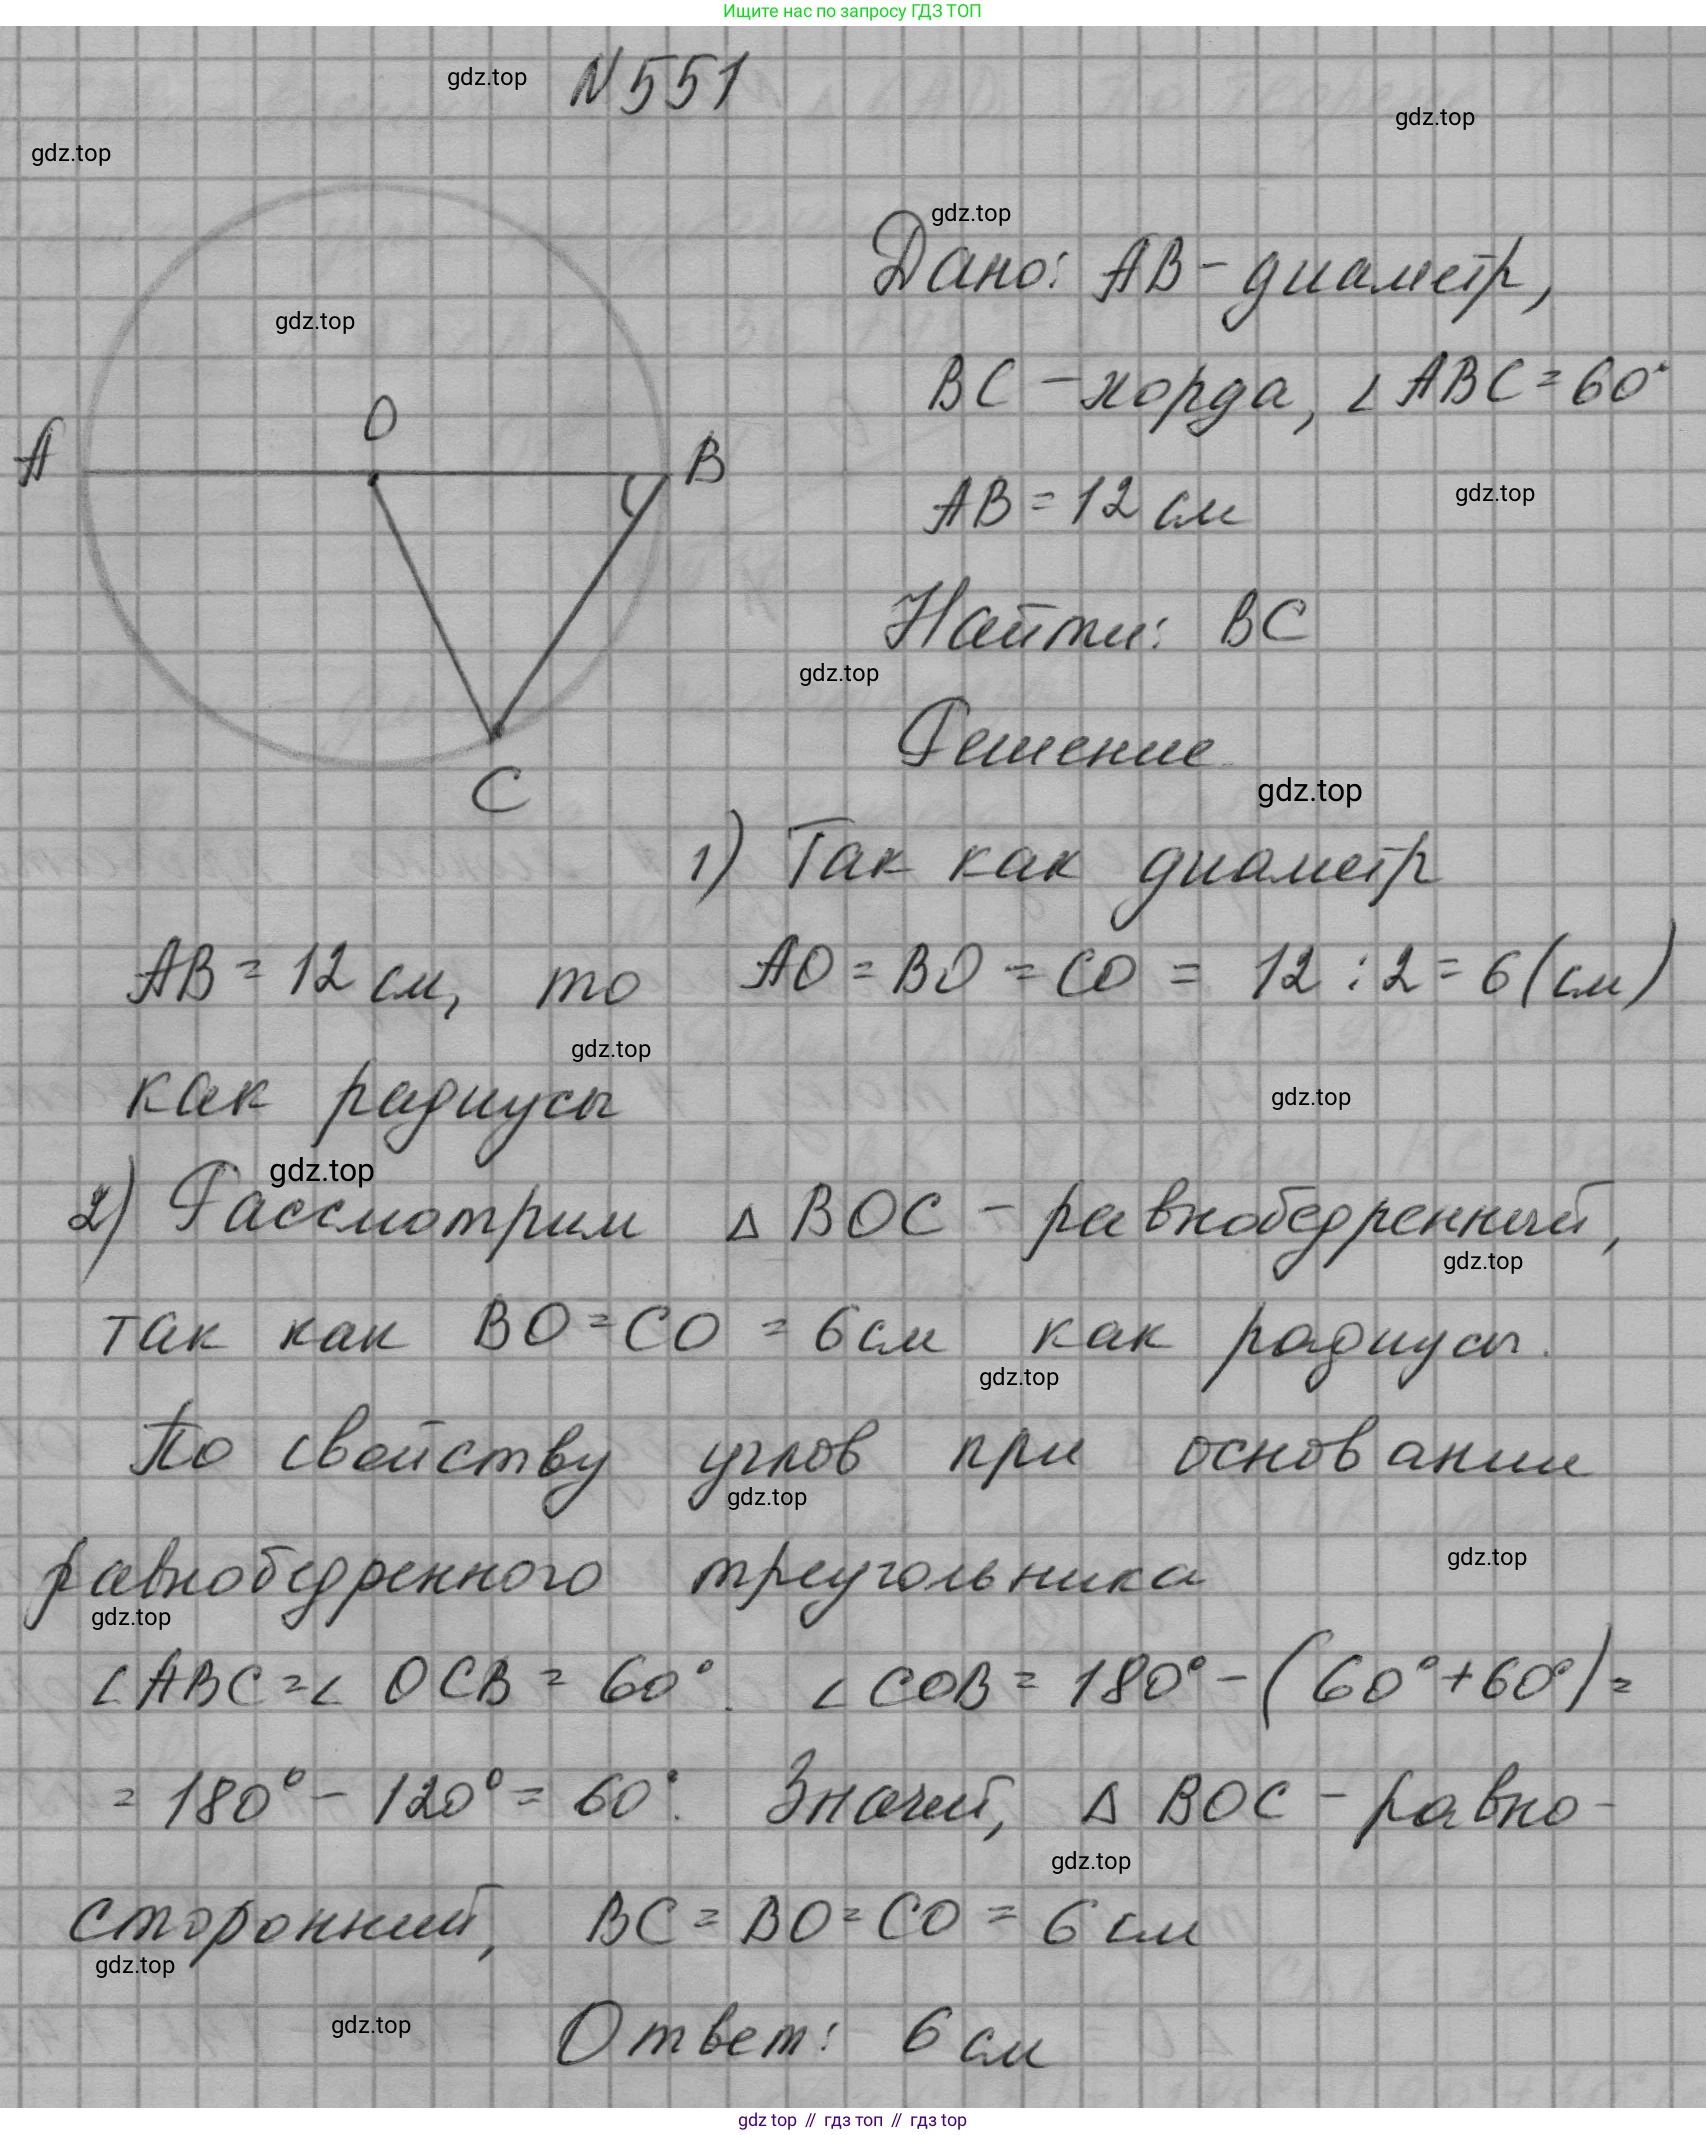 Ищите нас по запросу ГДЗ ТОП
N 551
gdz.top
gdz.top
gdz.top
gdz.top
Дано: AB - диаметр,
gdz.top
BC - хорда, ∠ABC = 60°
O
A
B
AB = 12 см
gdz.top
Найти: BC
gdz.top
Решение
gdz.top
C
1) Так как диаметр
AB = 12 см, то AO = BO = CO = 12 : 2 = 6 (см)
gdz.top
как радиусы
gdz.top
gdz.top
2) Рассмотрим △ BOC - равнобедренный,
gdz.top
так как BO = CO = 6 см как радиусы.
gdz.top
По свойству углов при основании
gdz.top
равнобедренного треугольника
gdz.top
gdz.top
∠ABC = ∠ OCB = 60°. ∠COB = 180° - (60° + 60°) =
= 180° - 120° = 60°. Значит, △ BOC - равно-
gdz.top
сторонний, BC = BO = CO = 6 см
gdz.top
gdz.top
Ответ: 6 см
gdz top // гдз топ // гдз top